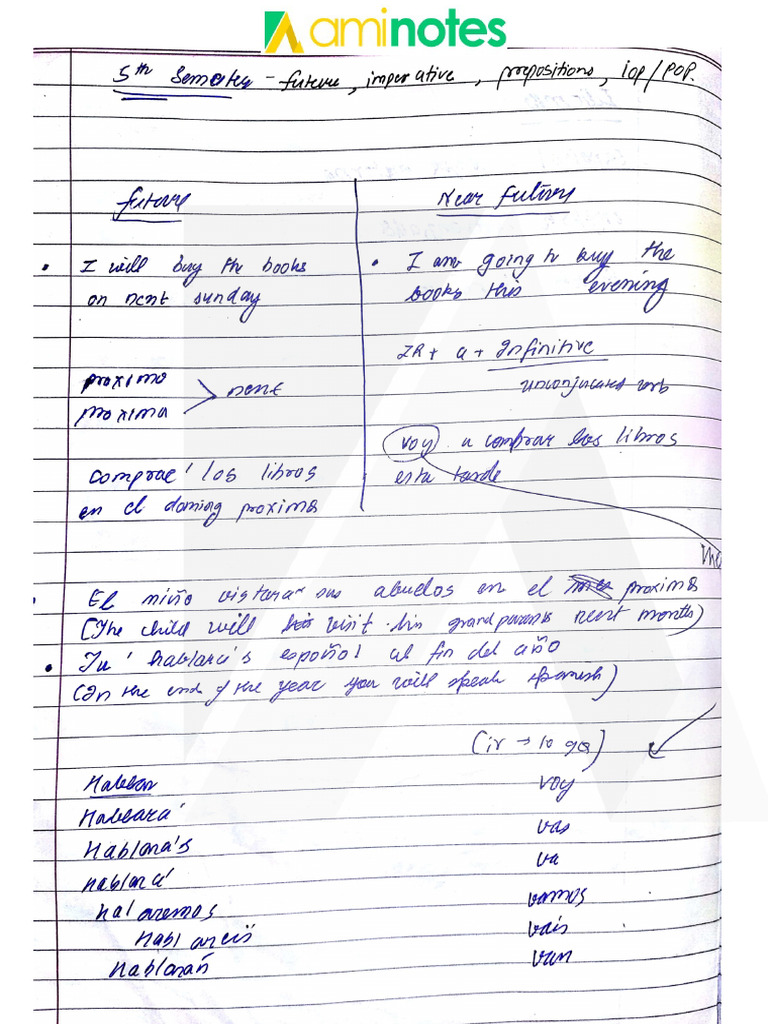 aminotes
5th Semester - future, imperative, prepositions, iop/pop.
future
Near future
• I will buy the books
on next sunday
• I am going to buy the
books this evening
IR + a + Infinitive
unconjucated verb
proximo
proxima > next
voy a comprar los libros
esta tarde
compraé los libros
en el doming proximo
El miño visitara sus abuelos en el proximo
(The child will visit his grandparents next months)
• Tu hablará's español al fin del año
(In the end of the year you will speak spanish)
(ir → to go)
Hablar
voy
Hablará
vas
Hablará's
va
hablará
vamos
hal aremos
vais
Habl areís
van
Hablarań